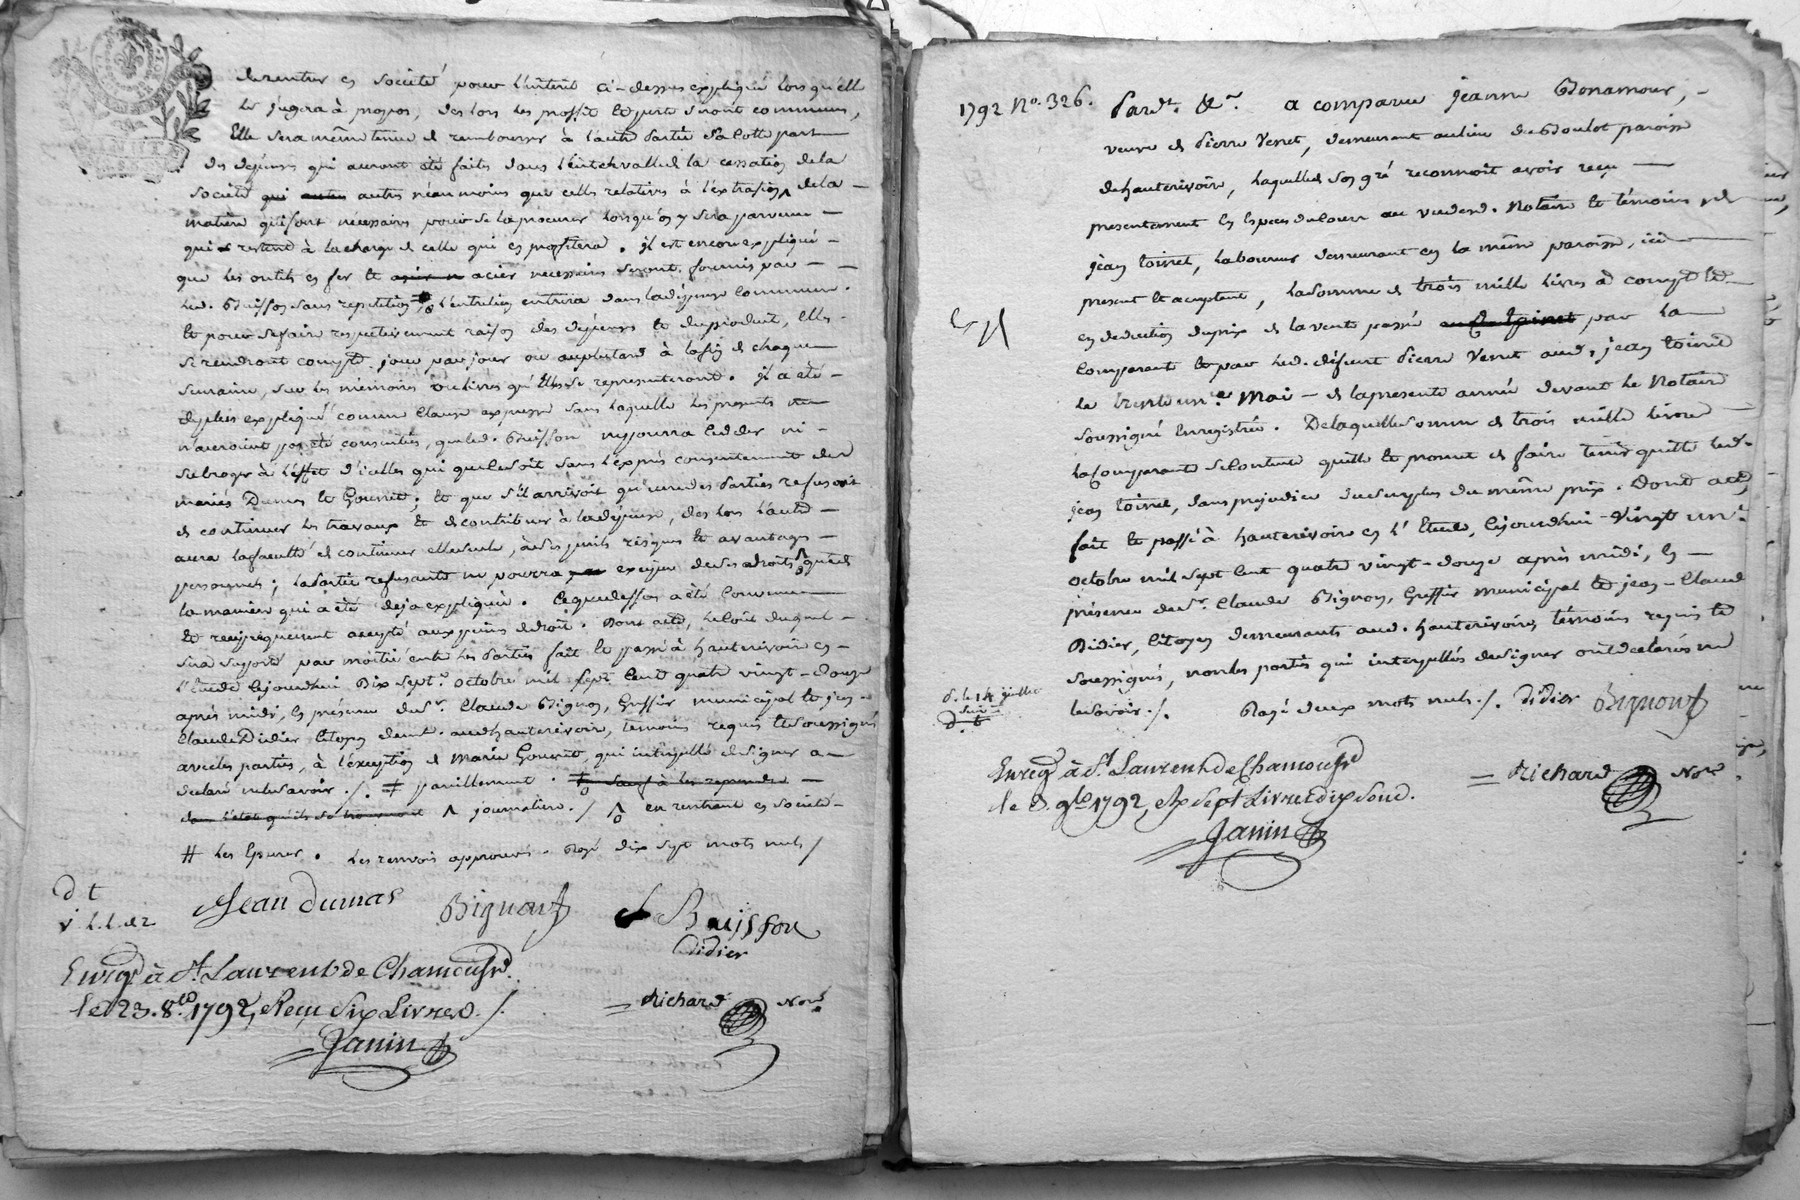 de rentrer en société pour l'intérêt ci-dessus expliqué lorsqu'elle
le jugera à propos, des lors les profit et perte seront communs,
Elle sera même tenue de rembourser à l'autre partie sa cotte part
des dépenses qui auront été faites dans l'intervalle de la cessation de la
société qui autres néanmoins que celles relatives à l'extraction ^ de la
matière qui sont nécessaires pour se la procurer lorsqu'on y sera parvenu
qui resteront à la charge de celle qui en profitera. il est encore expliqué
que les outils en fer et acier necessaires seront fournis par
led. Buisson sans repetition, l'entretien entrera dans la dépense commune.
et pour se faire respectivement raison des dépenses et du produit, elles
se rendront compte jour par jour ou au plus tard à la fin de chaque
semaine, sur les mémoires ou livres qu'elles se representeront. il a été
de plus expliqué comme clause expresse sans laquelle les presentes
n'auroient pas été consenties, que led. Buisson ne pourra ceder ni
subroger à l'effet d'icelles qui que ce soit sans l'exprès consentement des
mariés Dumas et Gouvret; et que s'il arrivoit qu'une des parties refusoit
de continuer les travaux et de contribuer à la dépense, des lors l'autre
aura la faculté de continuer elle seule, à ses perils risques et avantages
personnels; la partie refusante ne pourra exciper de ses droits que de
la maniere qui a été deja expliquée. Ce que dessus a été convenu
et reciproquement accepté aux peines de droit. Dont acte, le coût duquel
sera supporté par moitié entre les parties fait et passé à hauterivoire en
l'Etude cejourdhui Dix sept.e octobre mil sept cent quatre vingt-douze
après midi, En présence du S.r Claude Bignon, Greffier municipal et jean
Claude Didier citoyen demt. aud. hauterivoire, temoins requis et soussignés
avec les parties, à l'exception de Marie Gouvret, qui interpellée de signer a
declaré ne le savoir./. ǂ pareillement. sauf à les reprendre
dans l'état qu'ils se trouveront ^ journaliere./ ^ en rentrant en société
# les Epurer. les renvois approuvés. Rayé dix sept mots nuls/
Jean Dumas
Bignon
Buisson
Didier
Enregé à St Laurent de Chamousset
le 23. 8.bre 1792, Reçu Six Livres./.
Richard Nore
Janin
1792 No. 326.
Pardt. &r. a comparu jeanne Bonamour,
veuve de Pierre Venet, demeurant au lieu du Boulot paroisse
de hauterivoire, laquelle de son gré reconnoit avoir reçu
presentement En Especes de cours au vu desd. Notaire et témoins de
jean toinet, laboureur demeurant en la même paroisse, ici
present et acceptant, la somme de trois mille livres à compte et
en deduction du prix de la vente passée par la
Comparante et par led. défunt Pierre Venet aud. jean toinet
le trente un.e Mai de la presente année devant le Notaire
soussigné Enregistrée. De laquelle somme de trois mille livres
la Comparante se contente quitte et promet de faire tenir quitte led.
jean toinet, sans prejudice du surplus du même prix. Dont acte,
fait et passé à hauterivoire en l'Etude, cejourdhui Vingt un.e
octobre mil sept cent quatre vingt-douze après midi, En
présence du Sr. Claude Bignon, Greffier municipal et jean-Claude
Didier, Citoyen demeurants aud. hauterivoire, témoins requis et
soussignés, non les parties qui interpellées de signer ont declaré ne
le savoir./. Rayé deux mots nuls./. Didier Bignon
Enregé à St. Laurent de Chamousset
le 9bre 1792, Sept Livres dix Sous.
Richard Nore
Janin